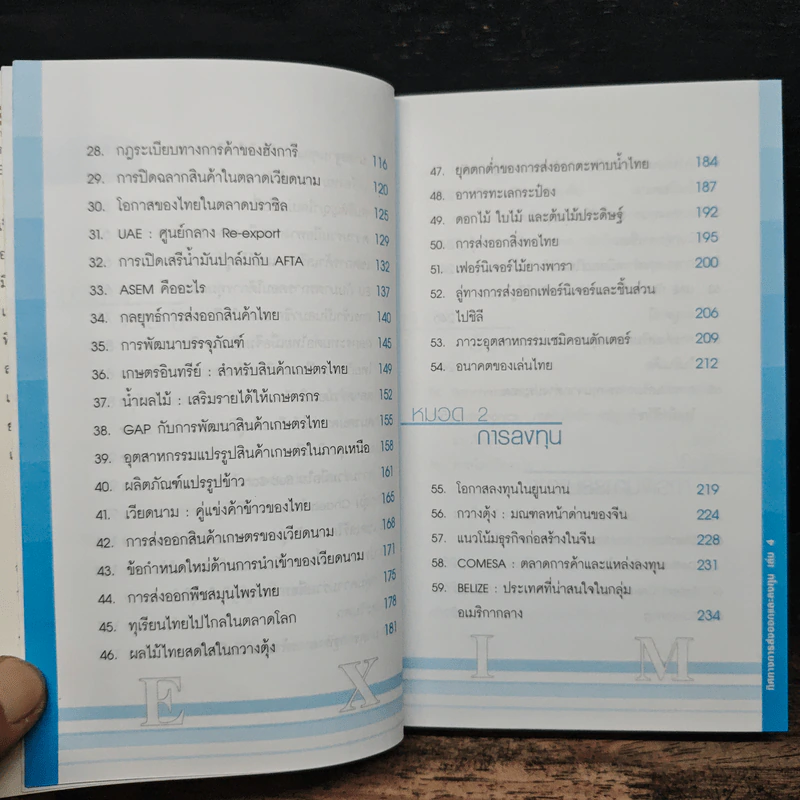 28. กฎระเบียบทางการค้าของฮังการี 116
29. การปิดฉลากสินค้าในตลาดเวียดนาม 120
30. โอกาสของไทยในตลาดบราซิล 125
31. UAE : ศูนย์กลาง Re-export 129
32. การเปิดเสรีน้ำมันปาล์มกับ AFTA 132
33. ASEM คืออะไร 137
34. กลยุทธ์การส่งออกสินค้าไทย 140
35. การพัฒนาบรรจุภัณฑ์ 145
36. เกษตรอินทรีย์ : สำหรับสินค้าเกษตรไทย 149
37. น้ำผลไม้ : เสริมรายได้ให้เกษตรกร 152
38. GAP กับการพัฒนาสินค้าเกษตรไทย 155
39. อุตสาหกรรมแปรรูปสินค้าเกษตรในภาคเหนือ 158
40. ผลิตภัณฑ์แปรรูปข้าว 161
41. เวียดนาม : คู่แข่งค้าข้าวของไทย 165
42. การส่งออกสินค้าเกษตรของเวียดนาม 168
43. ข้อกำหนดใหม่ด้านการนำเข้าของเวียดนาม 171
44. การส่งออกพืชสมุนไพรไทย 175
45. ทุเรียนไทยไปไกลในตลาดโลก 178
46. ผลไม้ไทยสดใสในกวางตุ้ง 181
E X
47. ยุคตกต่ำของการส่งออกตะพาบน้ำไทย 184
48. อาหารทะเลกระป๋อง 187
49. ดอกไม้ ใบไม้ และต้นไม้ประดิษฐ์ 192
50. การส่งออกสิ่งทอไทย 195
51. เฟอร์นิเจอร์ไม้ยางพารา 200
52. ลู่ทางการส่งออกเฟอร์นิเจอร์และชิ้นส่วน
ไปชิลี 206
53. ภาวะอุตสาหกรรมเซมิคอนดักเตอร์ 209
54. อนาคตของเล่นไทย 212
หมวด 2
การลงทุน
55. โอกาสลงทุนในยูนนาน 219
56. กวางตุ้ง : มณฑลหน้าด่านของจีน 224
57. แนวโน้มธุรกิจก่อสร้างในจีน 228
58. COMESA : ตลาดการค้าและแหล่งลงทุน 231
59. BELIZE : ประเทศที่น่าสนใจในกลุ่ม
อเมริกากลาง 234
I M
ทิศทางการส่งออกและลงทุน เล่ม 4